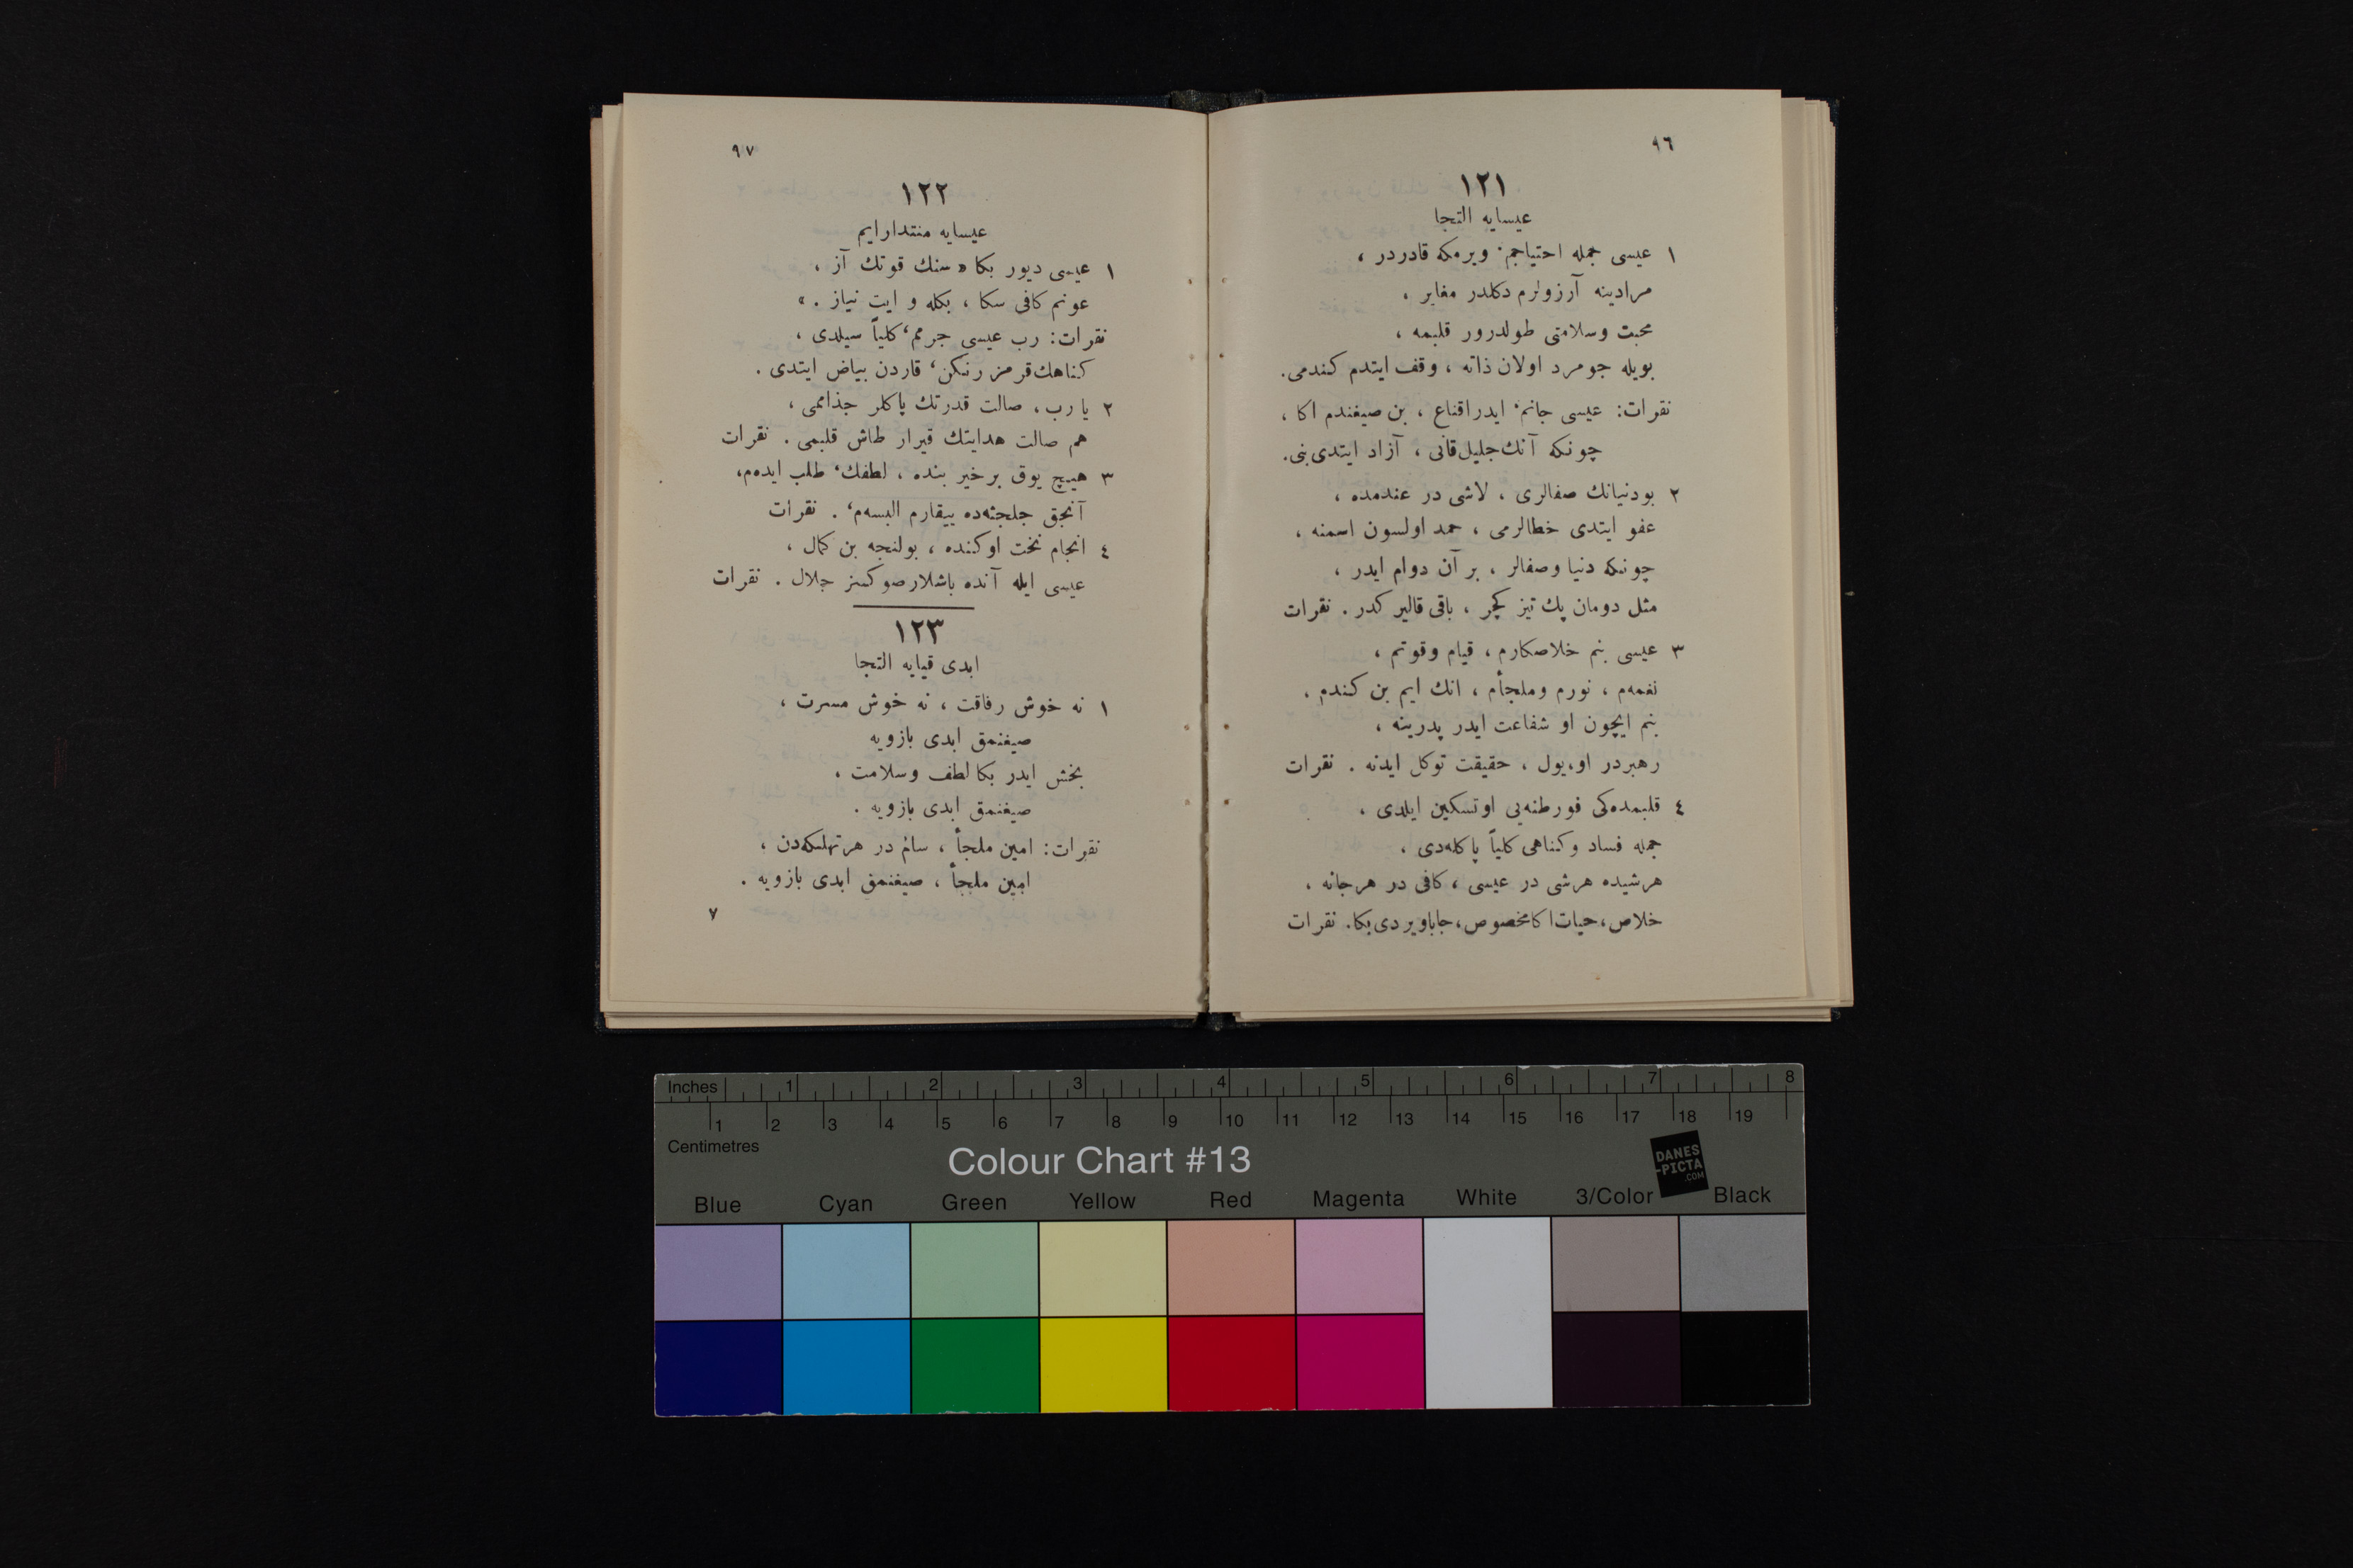 ٩٦
١٢١
عيسايه التجا
١ عيسى جمله احتياجمٴ ويرمكه قادردر ،
مرادينه آرزولرم دكلدر مغاير ،
محبت وسلامتى طولدرور قلبمه ،
بويله جومرد اولان ذاته ، وقف ايتدم كندمى.
نقرات: عيسى جانمٴ ايدر اقناع ، بن صيغندم اكا ،
چونكه آنك جليل قانى ، آزاد ايتدى بنى.
٢ بودنيانك صفالرى ، لاشى در عندمده ،
عفو ايتدى خطالرمى ، حمد اولسون اسمنه ،
چونكه دنيا وصفالر ، بر آن دوام ايدر ،
مثل دومان پك تيز كچر ، باقى قالير كدر . نقرات
٣ عيسى بنم خلاصكارم ، قيام وقوتم ،
نغمه‌م ، نورم وملجأم ، انك ايم بن كندم .
بنم ايچون او شفاعت ايدر پدرينه ،
رهبردر او، يول ، حقيقت توكل ايدنه . نقرات
٤ قلبمده‌كى فورطنه‌يى او تسكين ايلدى ،
جمله فساد وكناهمى كلياً پاكله‌دى ،
هرشيده هرشى در عيسى ، كافى در هرجانه ،
خلاص، حيات اكا مخصوص، جابا ويردى بكا. نقرات
٩٧
١٢٢
عيسايه منتدارايم
١ عيسى ديور بكا « سنك قوتك آز ،
عونم كافى سكا ، بكله و ايت نياز . »
نقرات: رب عيسى جرممٴ كلياً سيلدى ،
كناهك قرمز رنكنٴ قاردن بياض ايتدى .
٢ يا رب ، صالت قدرتك پاكلر جذاممى ،
هم صالت هدايتك قيرار طاش قلبمى . نقرات
٣ هيچ يوق برخير بنده ، لطفكٴ طلب ايده‌م،
آنجق جلجثه‌ده ييقارم البسه‌مٴ . نقرات
٤ انجام تخت اوكنده ، بولنجه بن كمال ،
عيسى ايله آنده باشلار صوكسز جلال . نقرات
١٢٣
ابدى قيايه التجا
١ نه خوش رفاقت ، نه خوش مسرت ،
صيغنمق ابدى بازويه
بخش ايدر بكا لطف وسلامت ،
صيغنمق ابدى بازويه .
نقرات: امين ملجأ ، سالم در هر تهلكه‌دن ،
امين ملجأ ، صيغنمق ابدى بازويه .
٧
Inches 1 2 3 4 5 6 7 8
1 2 3 4 5 6 7 8 9 10 11 12 13 14 15 16 17 18 19
Centimetres
Colour Chart #13
DANES
-PICTA
.COM
Blue Cyan Green Yellow Red Magenta White 3/Color Black